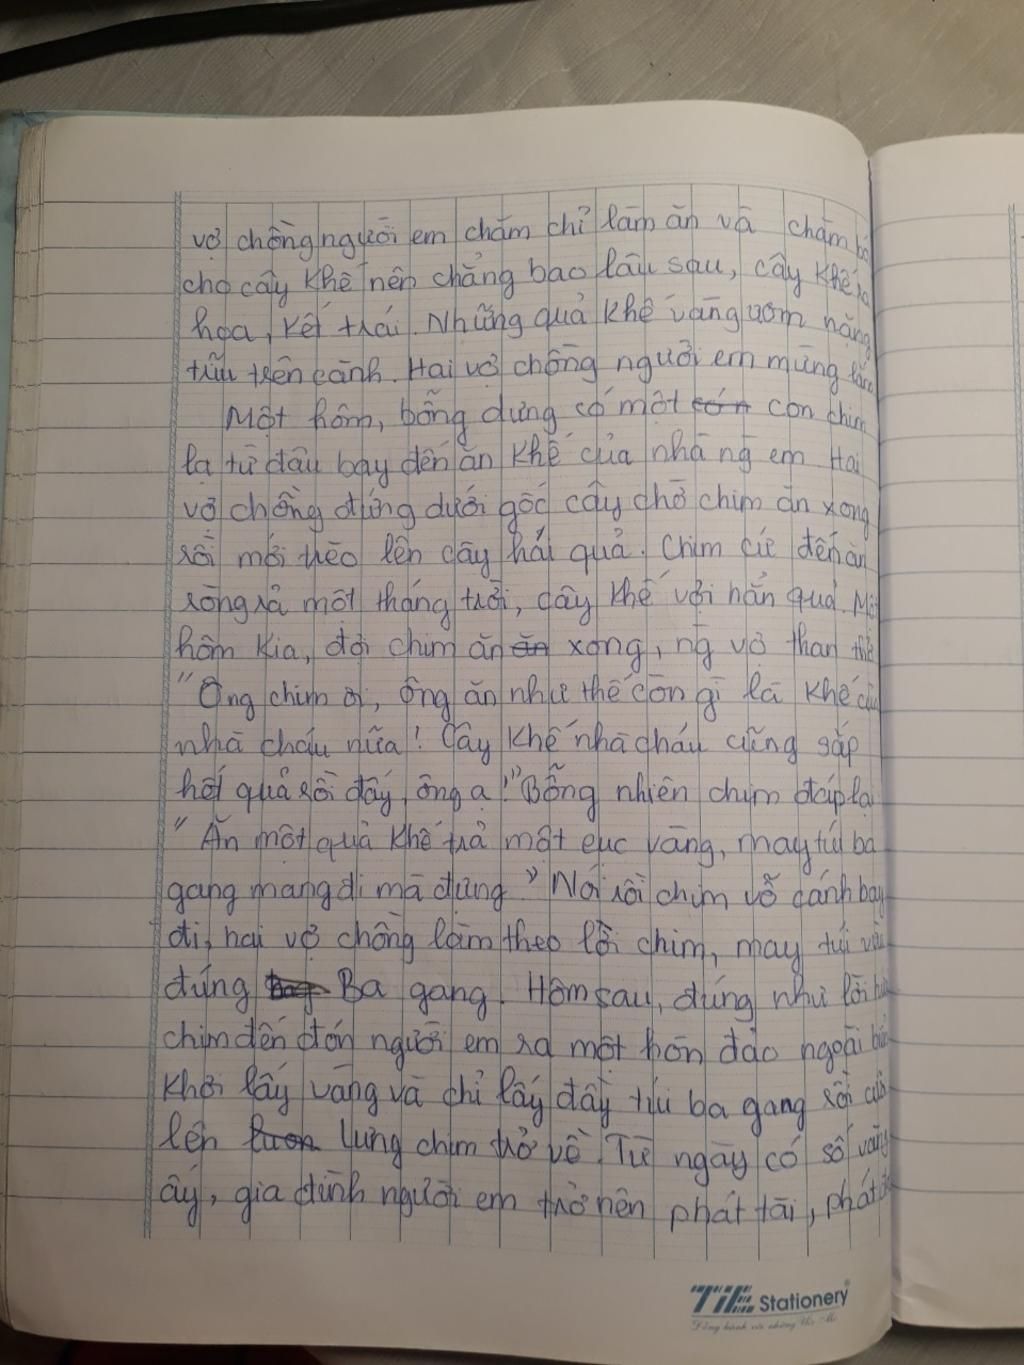 vợ chồng người em chăm chỉ làm ăn và chăm
cho cây khế nên chẳng bao lâu sau, cây khế
hoa, kết trái. Những quả khế vàng ươm nặng
trĩu trên cành. Hai vợ chồng người em mừng lắm
Một hôm, bỗng dưng có một con chim
lạ từ đâu bay đến ăn khế của nhà ng em Hai
vợ chồng đứng dưới gốc cây chờ chim ăn xong
rồi mới trèo lên cây hái quả. Chim cứ đến ăn
ròng rả một tháng trời, cây khế vơi hẳn quả. Một
hôm kia, đợi chim ăn xong, ng vợ than thở
"Ông chim ơi, ông ăn như thế còn gì là khế của
nhà cháu nữa! Cây khế nhà cháu cũng sắp
hết quả rồi đấy, ông ạ!" Bỗng nhiên chim đáp lại
"Ăn một quả khế trả một cục vàng, may túi ba
gang mang đi mà đựng" Nói rồi chim vỗ cánh bay
đi, hai vợ chồng làm theo lời chim, may túi vừa
đúng Ba gang. Hôm sau, đúng như lời
chim đến đón người em ra một hòn đảo ngoài
khơi lấy vàng và chỉ lấy đầy túi ba gang rồi
lên lưng chim trở về. Từ ngày có số vàng
ấy, gia đình người em trở nên phát tài, phát
TiE Stationery